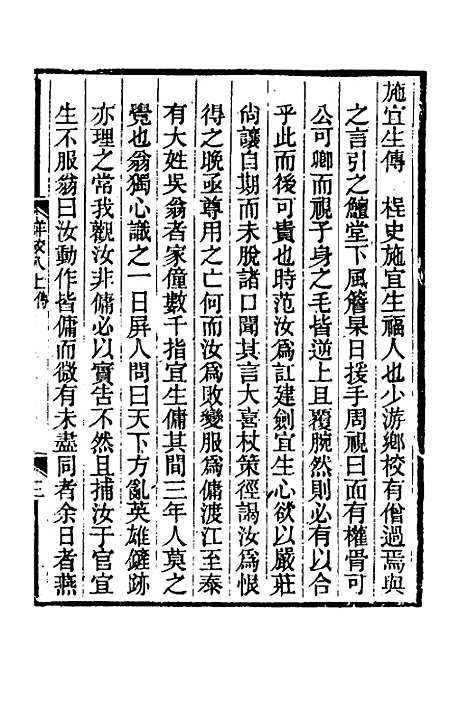 施宜生傳　桯史施宜生福人也少游鄉校有僧過焉與
之言引之鱣堂下風簷杲日援手周視曰面有權骨可
公可卿而視子身之毛皆逆上且覆腕然則必有以合
乎此而後可貴也時范汝爲訌建劍宜生心欲以嚴莊
尙讓自期而未脫諸口聞其言大喜杖策徑謁汝爲恨
得之晚亟尊用之亡何而汝爲敗變服爲傭渡江至泰
有大姓吳翁者家僮數千指宜生傭其間三年人莫之
覺也翁獨心識之一日屏人問曰天下方亂英雄鏟跡
亦理之常我觀汝非傭必以實告不然且捕汝于官宜
生不服翁曰汝動作皆傭而微有未盡同者余日者燕
三